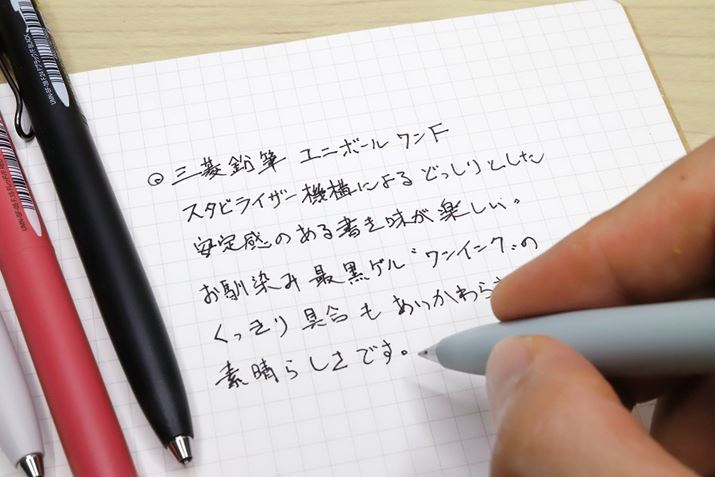 ◎三菱鉛筆 ユニボール ワンF
スタビライザー機構による どっしりとした
安定感のある書き味が楽しい。
お馴染み 最黒ゲル“ワンインク”の
くっきり具合も あいかわらず
素晴らしさです。